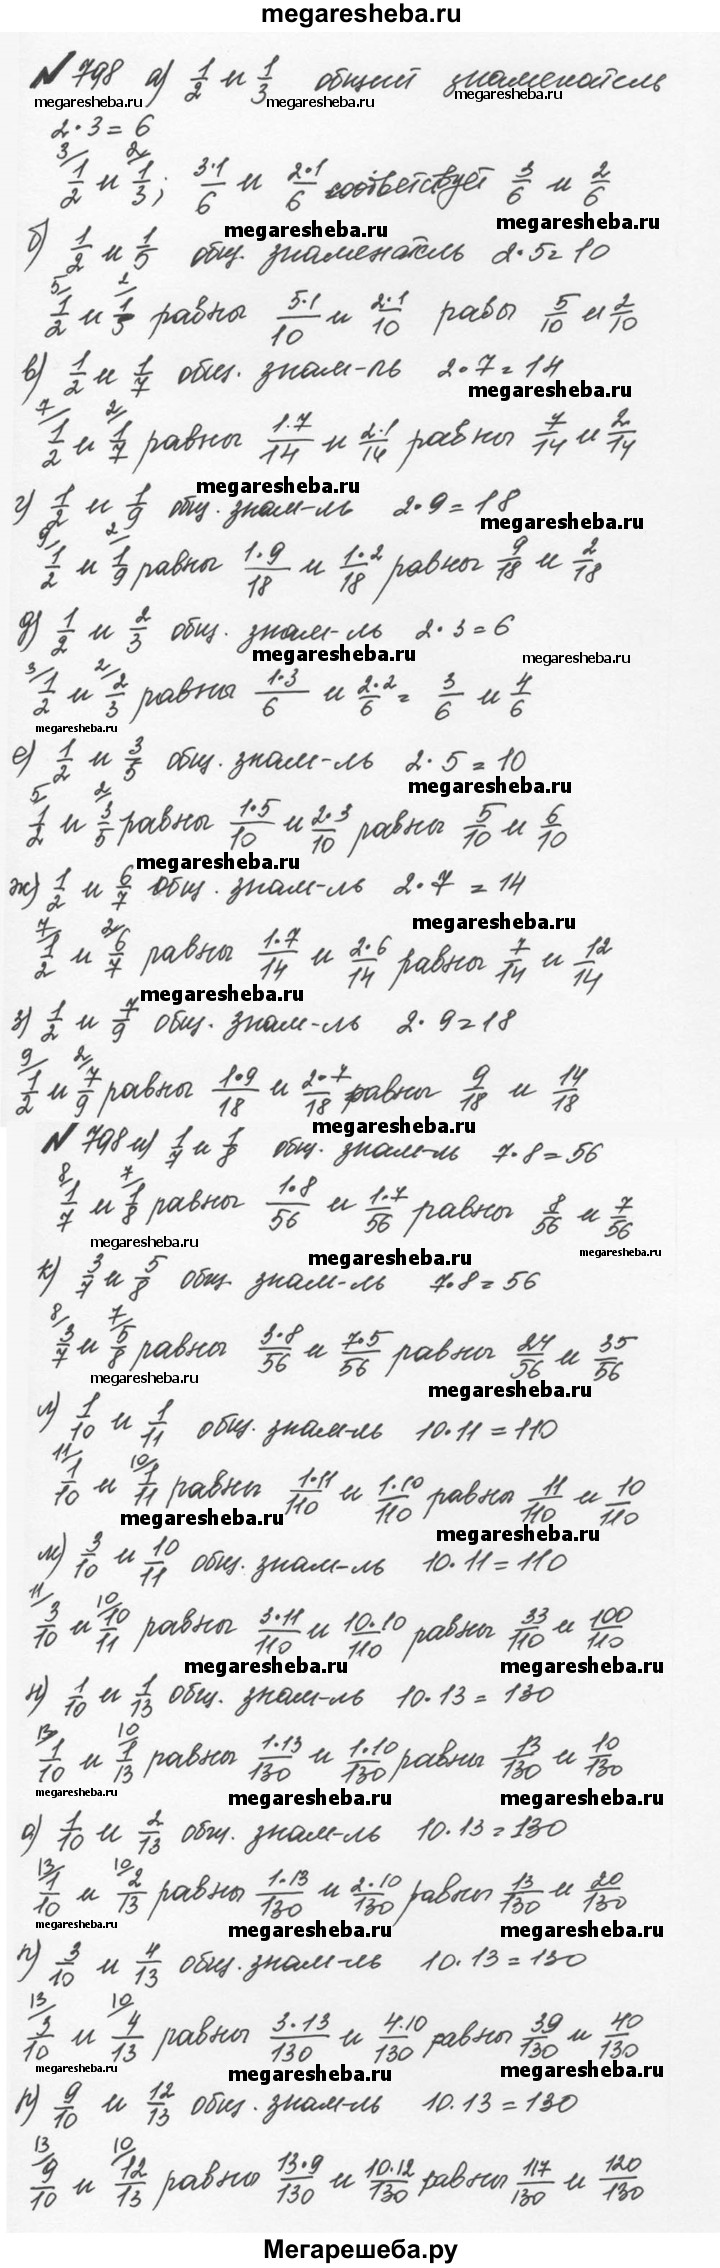 megaresheba.ru
№ 798 а) 1/2 и 1/3 общий знаменатель
megaresheba.ru megaresheba.ru megaresheba.ru
2·3=6
3/ 1/2 и 2/ 1/3; 3·1/6 и 2·1/6 соответствует 3/6 и 2/6
megaresheba.ru megaresheba.ru
б) 1/2 и 1/5 общ. знаменатель 2·5=10
5/ 1/2 и 2/ 1/5 равны 5·1/10 и 2·1/10 равы 5/10 и 2/10
в) 1/2 и 1/7 общ. знам-ль 2·7=14
megaresheba.ru
7/ 1/2 и 2/ 1/7 равны 1·7/14 и 2·1/14 равны 7/14 и 2/14
megaresheba.ru
г) 1/2 и 1/9 общ. знам-ль 2·9=18
megaresheba.ru
9/ 1/2 и 2/ 1/9 равны 1·9/18 и 1·2/18 равны 9/18 и 2/18
д) 1/2 и 2/3 общ. знам-ль 2·3=6
megaresheba.ru megaresheba.ru
3/ 1/2 и 2/ 2/3 равны 1·3/6 и 2·2/6 = 3/6 и 4/6
megaresheba.ru
е) 1/2 и 3/5 общ. знам-ль 2·5=10
megaresheba.ru
5/ 1/2 и 2/ 3/5 равны 1·5/10 и 2·3/10 равны 5/10 и 6/10
megaresheba.ru
ж) 1/2 и 6/7 общ. знам-ль 2·7=14
megaresheba.ru
7/ 1/2 и 2/ 6/7 равны 1·7/14 и 2·6/14 равны 7/14 и 12/14
megaresheba.ru
з) 1/2 и 7/9 общ. знам-ль 2·9=18
9/ 1/2 и 2/ 7/9 равны 1·9/18 и 2·7/18 равны 9/18 и 14/18
megaresheba.ru
№ 798 и) 1/7 и 1/8 общ. знам-ль 7·8=56
8/ 1/7 и 7/ 1/8 равны 1·8/56 и 1·7/56 равны 8/56 и 7/56
megaresheba.ru megaresheba.ru megaresheba.ru
к) 3/7 и 5/8 общ. знам-ль 7·8=56
8/ 3/7 и 7/ 5/8 равны 3·8/56 и 7·5/56 равны 24/56 и 35/56
megaresheba.ru megaresheba.ru
л) 1/10 и 1/11 общ. знам-ль 10·11=110
11/ 1/10 и 10/ 1/11 равны 1·11/110 и 1·10/110 равны 11/110 и 10/110
megaresheba.ru megaresheba.ru
м) 3/10 и 10/11 общ. знам-ль 10·11=110
11/ 3/10 и 10/ 10/11 равны 3·11/110 и 10·10/110 равны 33/110 и 100/110
megaresheba.ru megaresheba.ru
н) 1/10 и 1/13 общ. знам-ль 10·13=130
13/ 1/10 и 10/ 1/13 равны 1·13/130 и 1·10/130 равны 13/130 и 10/130
megaresheba.ru megaresheba.ru megaresheba.ru
о) 1/10 и 2/13 общ. знам-ль 10·13=130
13/ 1/10 и 10/ 2/13 равны 1·13/130 и 2·10/130 равны 13/130 и 20/130
megaresheba.ru megaresheba.ru megaresheba.ru
п) 3/10 и 4/13 общ. знам-ль 10·13=130
13/ 3/10 и 10/ 4/13 равны 3·13/130 и 4·10/130 равны 39/130 и 40/130
megaresheba.ru megaresheba.ru megaresheba.ru
р) 9/10 и 12/13 общ. знам-ль 10·13=130
13/ 9/10 и 10/ 12/13 равны 13·9/130 и 10·12/130 равны 117/130 и 120/130
Мегарешеба.ру